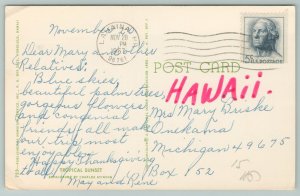 November
Dear Mary and other
Relatives:
Blue skies,
beautiful palm trees,
gorgeous flowers
and congenial
friends, all make
our trip most
enjoyable.
Happy Thanksgiving
to all,
May and Rene
TROPICAL SUNSET
LAHAINA
NOV 26
PM
POST CARD
HAWAII.
Mrs Mary Buske
Onekama
Michigan 49675
Box 152
15